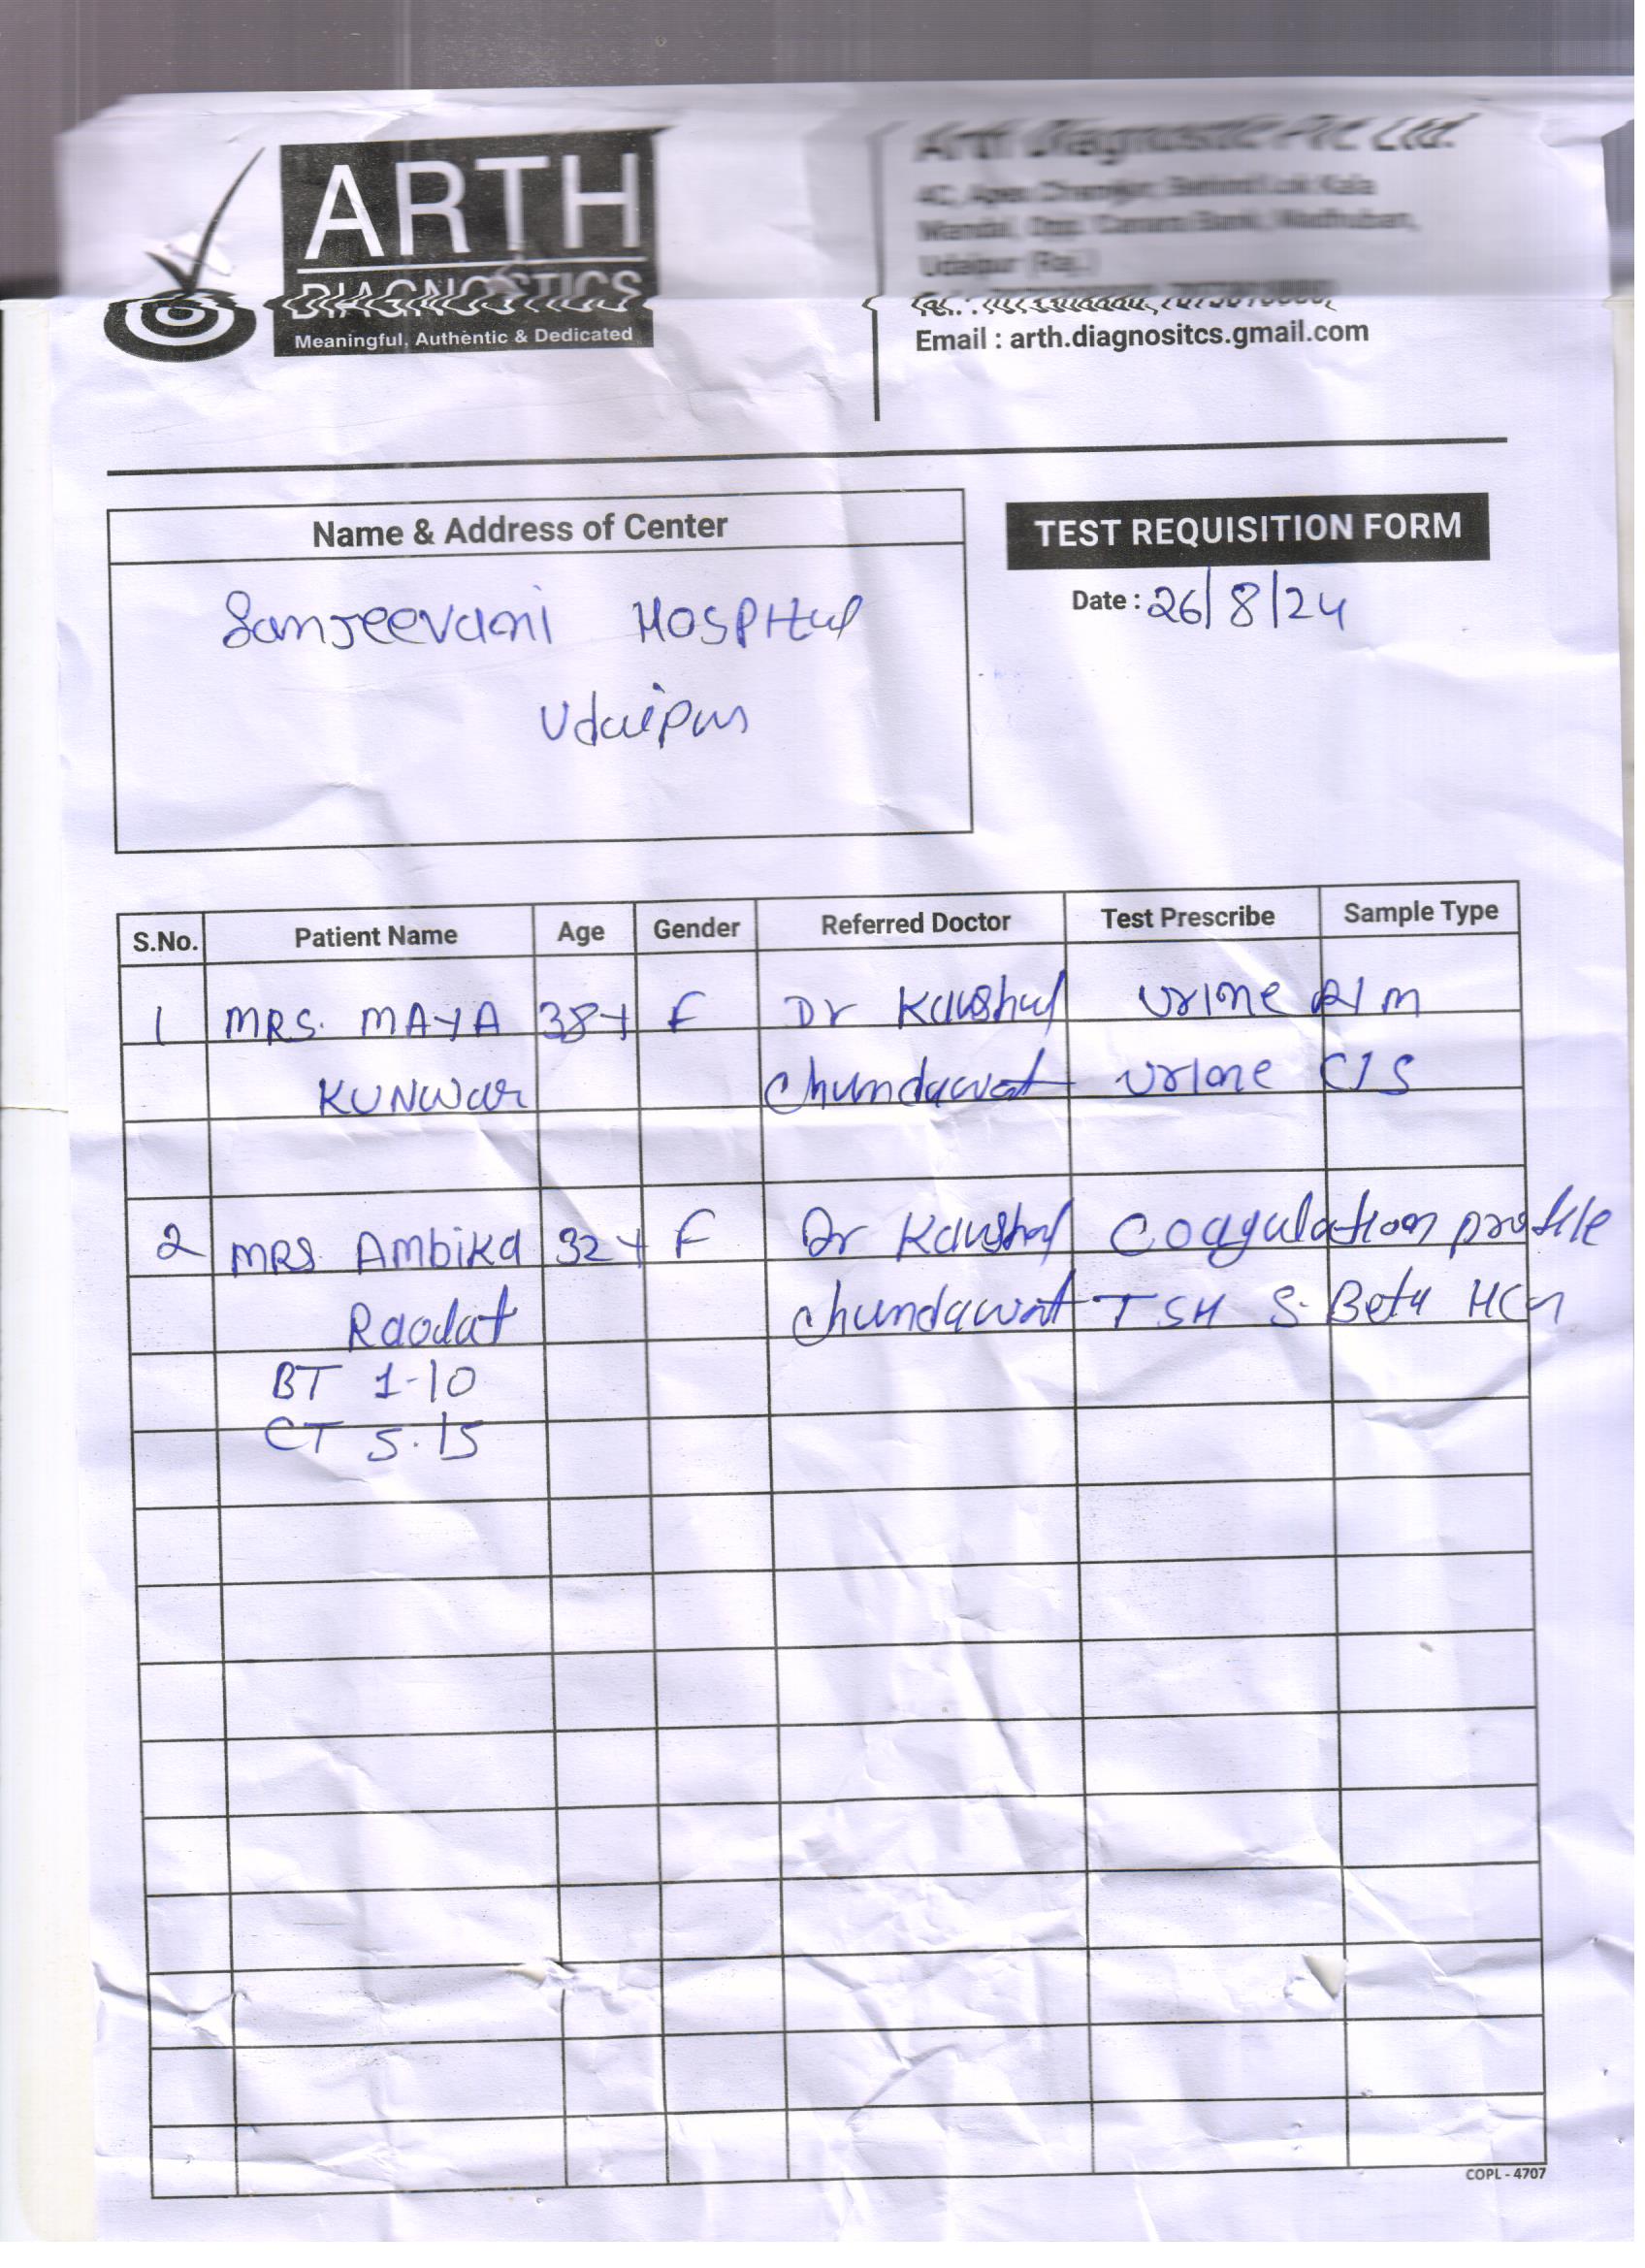 ARTH
DIAGNOSTICS
Meaningful, Authentic & Dedicated
Arth Diagnostic Pvt Ltd.
Udaipur (Raj.)
Email : arth.diagnositcs.gmail.com
Name & Address of Center
TEST REQUISITION FORM
Sanjeevani Hospital
Udaipur
Date : 26/8/24
S.No. Patient Name Age Gender Referred Doctor Test Prescribe Sample Type
1 MRS. MAYA 38Y F Dr Kaushal Urine R/M
KUNWAR Chundawat Urine C/S
2 MRS Ambika 32Y F Dr Kaushal Coagulation profile
Raodat Chundawat TSH S. Beta HCG
BT 1-10
CT 5.15
COPL - 4707